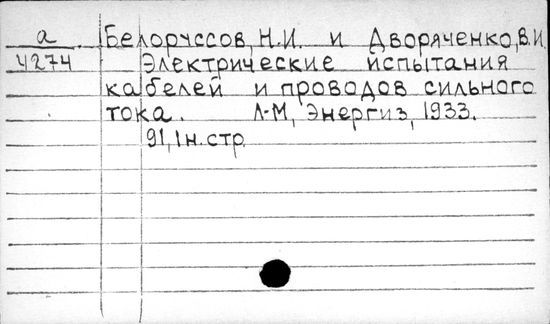 а Белоруссов, Н.И. и Дворяченко, В.И
4274 Электрические испытания
кабелей и проводов сильного
тока. Л-М, Энергиз, 1933.
91, 1 н. стр.